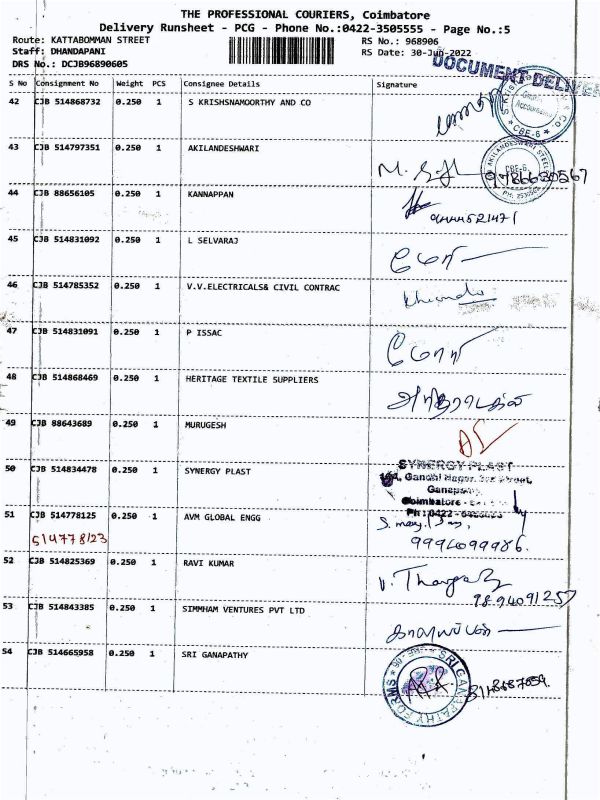 THE PROFESSIONAL COURIERS, Coimbatore
Delivery Runsheet - PCG - Phone No.:0422-3505555 - Page No.:5
Route: KATTABOMMAN STREET RS No.: 968906
Staff: DHANDAPANI RS Date: 30-Jun-2022
DRS No.: DCJB96890605
DOCUMENT DELIVER
S No Consignment No Weight PCS Consignee Details Signature
42 CJB 514868732 0.250 1 S KRISHNAMOORTHY AND CO
CBE-6
43 CJB 514797351 0.250 1 AKILANDESHWARI
AKILANDESWARI STEEL
CBE-6.
9786630567
44 CJB 88656105 0.250 1 KANNAPPAN
9444521471
45 CJB 514831092 0.250 1 L SELVARAJ
46 CJB 514785352 0.250 1 V.V.ELECTRICALS& CIVIL CONTRAC
47 CJB 514831091 0.250 1 P ISSAC
48 CJB 514868469 0.250 1 HERITAGE TEXTILE SUPPLIERS
49 CJB 88643689 0.250 1 MURUGESH
50 CJB 514834478 0.250 1 SYNERGY PLAST
SYNERGY PLAST
Gandhi Nagar, Street,
Coimbatore
51 CJB 514778125 0.250 1 AVM GLOBAL ENGG
514778123
9994099986.
52 CJB 514825369 0.250 1 RAVI KUMAR
9894091257
53 CJB 514843385 0.250 1 SIMMHAM VENTURES PVT LTD
54 CJB 514665958 0.250 1 SRI GANAPATHY
SRI GANAPATHY FORMS